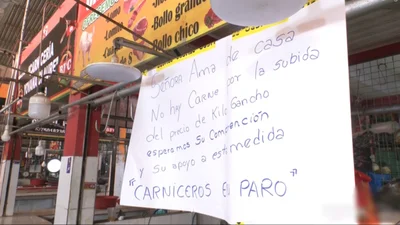 CARNICERIA
Bollo grande
Bollo chico
SEÑORA Anna de casa
No hay Carne por la subida
del precio de Kilo Gancho
esperamos su Comprención
y su apoyo a esta medida
"CARNICEROS EN PARO"